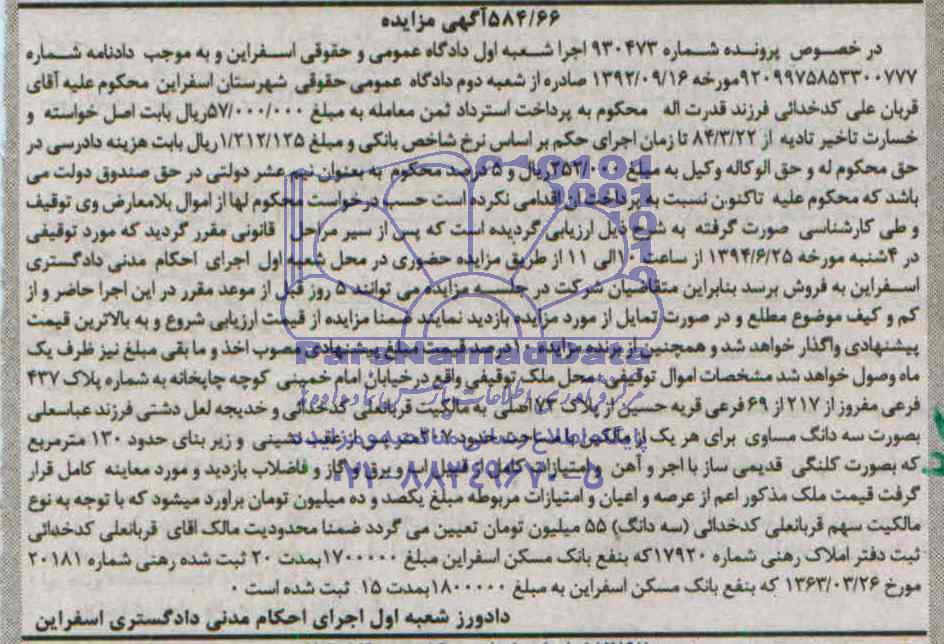 ۵۸۴/۶۶آگهی مزایده
در خصوص پرونده شماره ۹۳۰۴۷۳ اجرا شعبه اول دادگاه عمومی و حقوقی اسفراین و به موجب دادنامه شماره
۹۲۰۹۹۷۵۸۵۳۳۰۰۷۷۷مورخه ۱۳۹۲/۰۹/۱۶ صادره از شعبه دوم دادگاه عمومی حقوقی شهرستان اسفراین محکوم علیه آقای
قربان علی کدخدائی فرزند قدرت اله محکوم به پرداخت استرداد ثمن معامله به مبلغ ۵۷/۰۰۰/۰۰۰ریال بابت اصل خواسته و
خسارت تاخیر تادیه از ۸۴/۳/۲۲ تا زمان اجرای حکم بر اساس نرخ شاخص بانکی و مبلغ ۱/۲۱۲/۱۲۵ریال بابت هزینه دادرسی در
حق محکوم له و حق الوکاله وکیل به مبلغ ۲۵۲/۰۰۰ریال و ۵ درصد محکوم به بعنوان نیم عشر دولتی در حق صندوق دولت می
باشد که محکوم علیه تاکنون نسبت به پرداخت ان اقدامی نکرده است حسب درخواست محکوم لها از اموال بلامعارض وی توقیف
و طی کارشناسی صورت گرفته به شرح ذیل ارزیابی گردیده است که پس از سیر مراحل قانونی مقرر گردید که مورد توقیفی
در ۴شنبه مورخه ۱۳۹۴/۶/۲۵ از ساعت ۱۰الی ۱۱ از طریق مزایده حضوری در محل شعبه اول اجرای احکام مدنی دادگستری
اسفراین به فروش برسد بنابراین متقاضیان شرکت در جلسه مزایده می توانند ۵ روز قبل از موعد مقرر در این اجرا حاضر و از
کم و کیف موضوع مطلع و در صورت تمایل از مورد مزایده بازدید نمایند ضمنا مزایده از قیمت ارزیابی شروع و به بالاترین قیمت
پیشنهادی واگذار خواهد شد و همچنین از برنده مزایده ۱۰درصد قیمت مبلغ پیشنهادی مصوب اخذ و ما بقی مبلغ نیز ظرف یک
ماه وصول خواهد شد مشخصات اموال توقیفی: محل ملک توقیفی واقع درخیابان امام خمینی کوچه چاپخانه به شماره پلاک ۴۳۷
فرعی مفروز از ۲۱۷ از ۶۹ فرعی قریه حسین از پلاک ۷۳اصلی به مالکیت قربانعلی کدخدائی و خدیجه لعل دشتی فرزند عباسعلی
بصورت سه دانگ مساوی برای هر یک از مالکین با مساحت حدود ۲۰۷ متر پس از عقب نشینی و زیر بنای حدود ۱۳۰ مترمربع
که بصورت کلنگی قدیمی ساز با اجر و آهن و امتیازات کامل از قبیل اب و برق و گاز و فاضلاب بازدید و مورد معاینه کامل قرار
گرفت قیمت ملک مذکور اعم از عرصه و اعیان و امتیازات مربوطه مبلغ یکصد و ده میلیون تومان براورد میشود که با توجه به نوع
مالکیت سهم قربانعلی کدخدائی (سه دانگ) ۵۵ میلیون تومان تعیین می گردد ضمنا محدودیت مالک اقای قربانعلی کدخدائی
ثبت دفتر املاک رهنی شماره ۱۷۹۲۰که بنفع بانک مسکن اسفراین مبلغ ۱۷۰۰۰۰۰بمدت ۲۰ ثبت شده رهنی شماره ۲۰۱۸۱
مورخ ۱۳۶۳/۰۳/۲۶ که بنفع بانک مسکن اسفراین به مبلغ ۱۸۰۰۰۰۰بمدت ۱۵ ثبت شده است ۰
دادورز شعبه اول اجرای احکام مدنی دادگستری اسفراین
ParsNamadData
۰۲۱-۸۸۳۴۹۶۷۰-۵